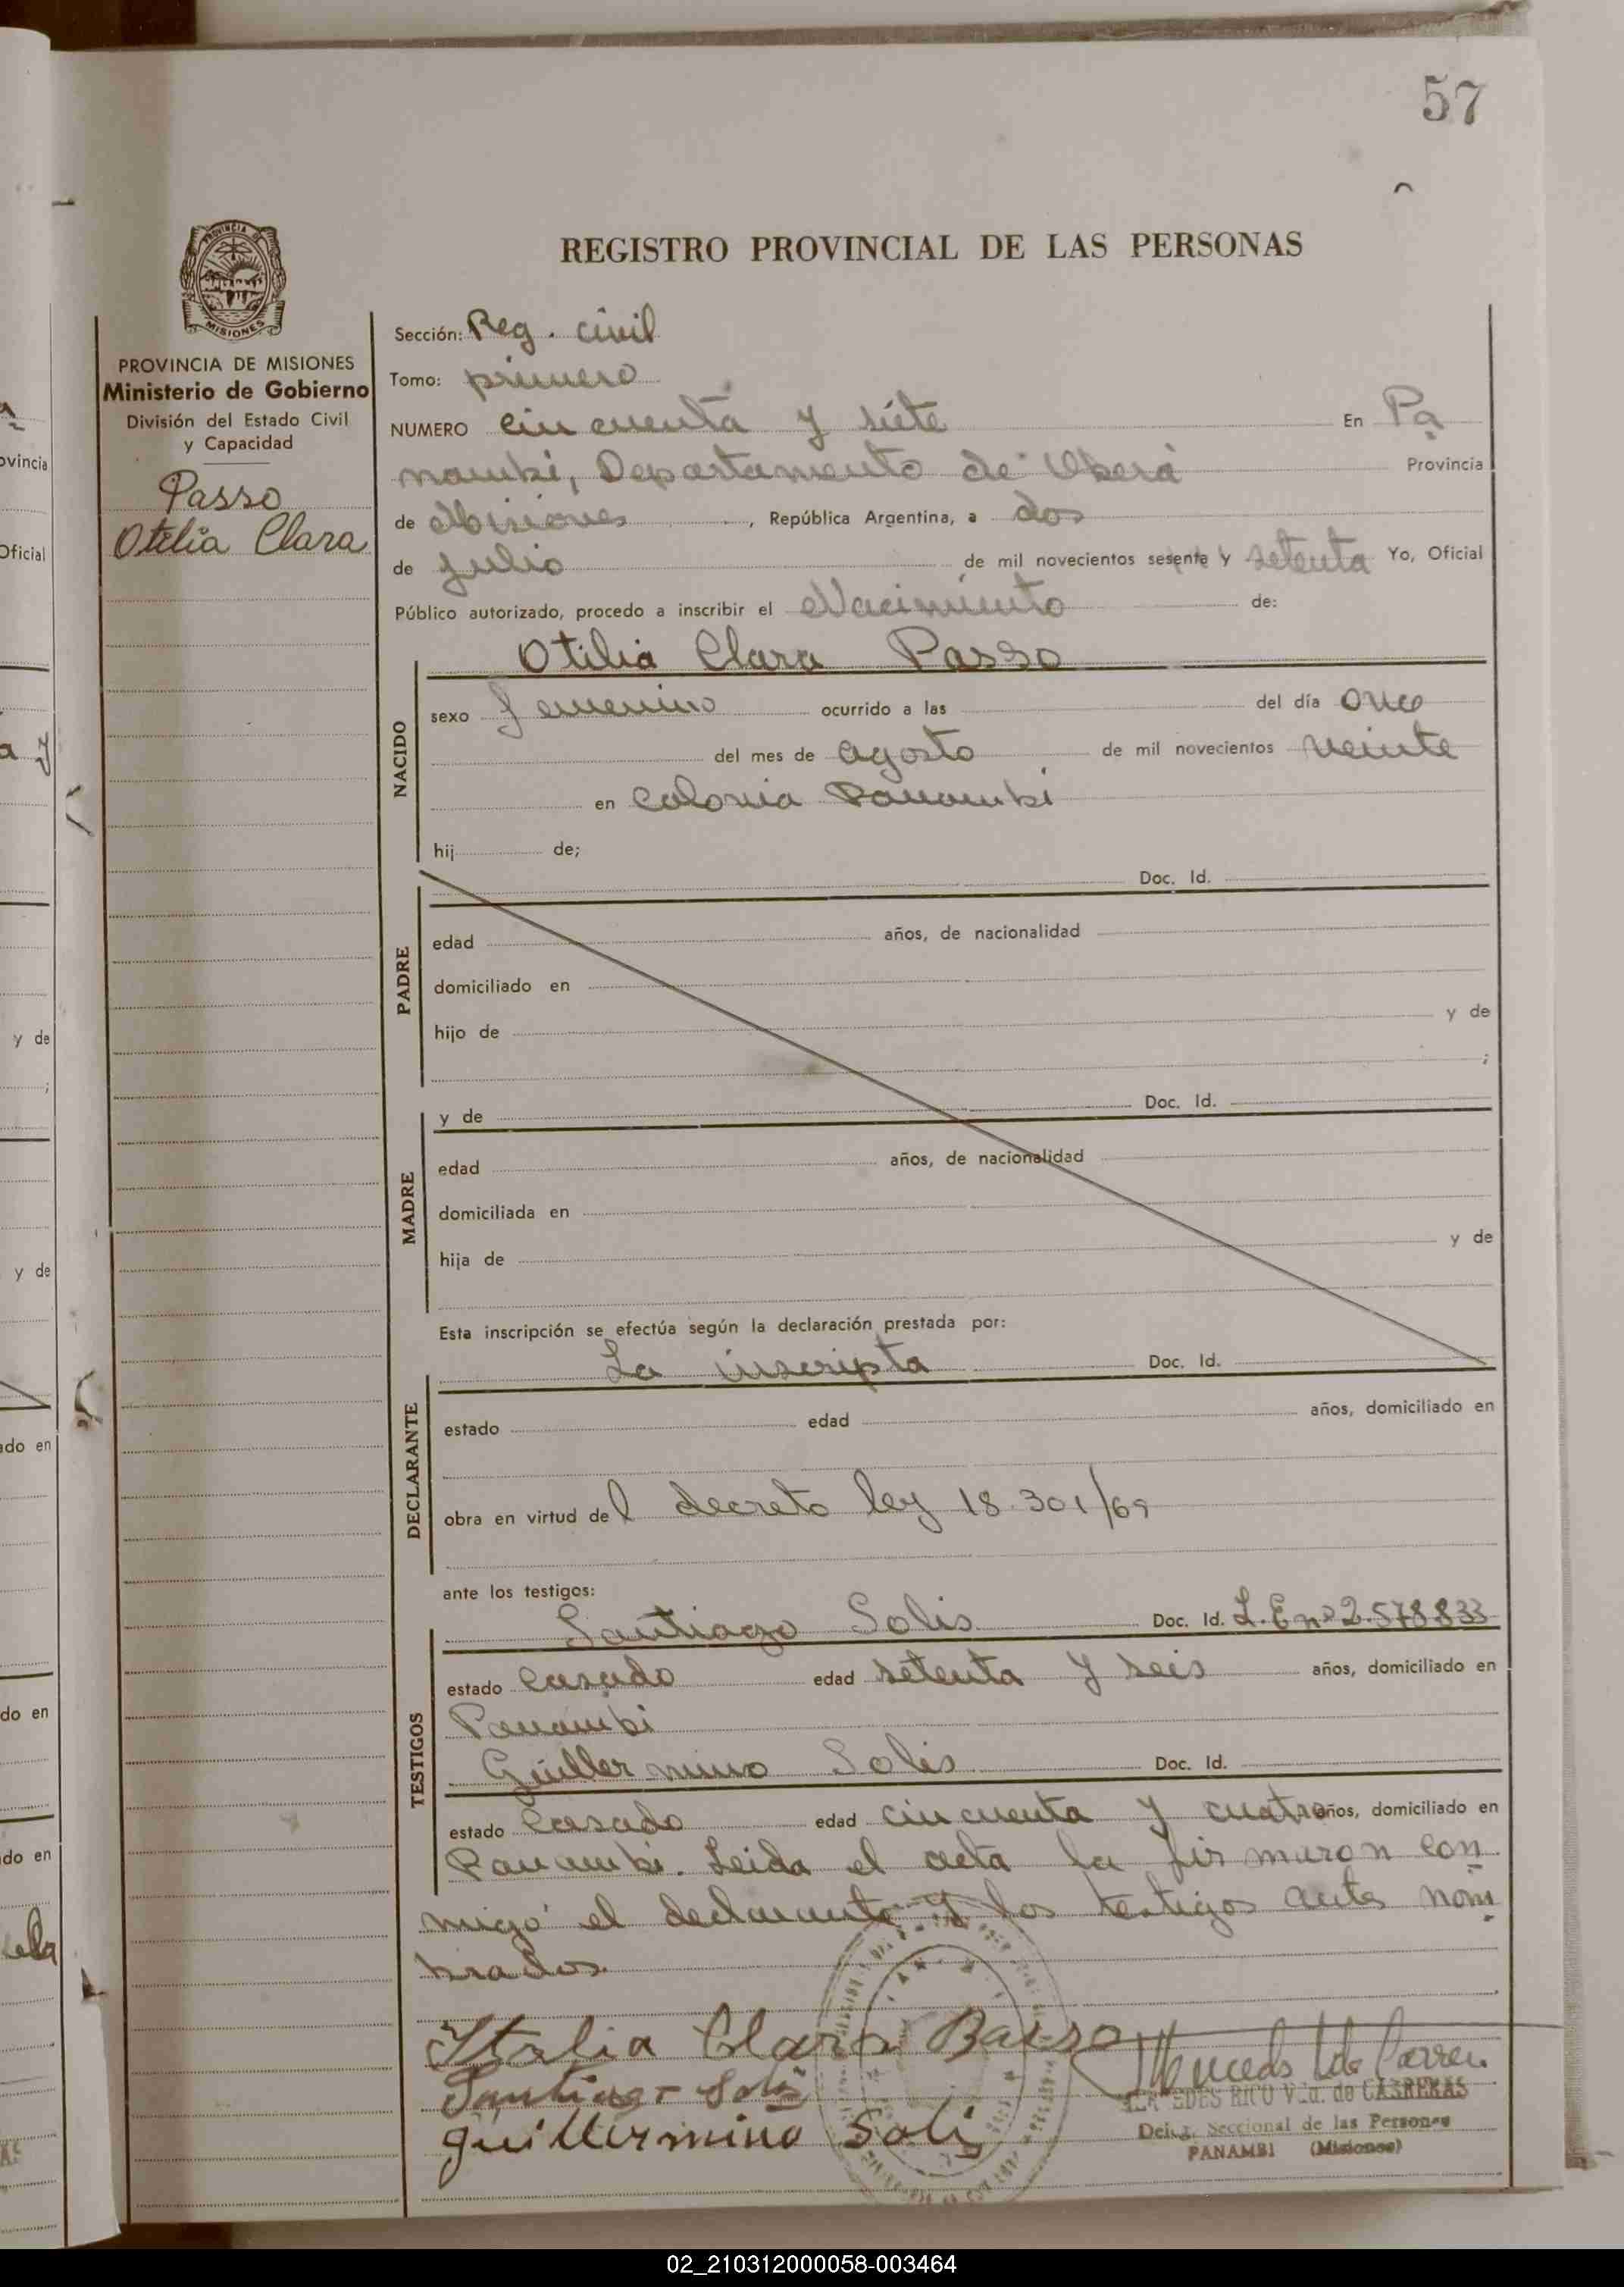 57
PROVINCIA DE
MISIONES
REGISTRO PROVINCIAL DE LAS PERSONAS
PROVINCIA DE MISIONES
Ministerio de Gobierno
División del Estado Civil
y Capacidad
Passo
Otilia Clara
Sección: Reg. civil
Tomo: primero
NUMERO cincuenta y siete En Pa
nambi, Departamento de Oberá Provincia
de Misiones, República Argentina, a dos
de julio de mil novecientos sesenta y setenta Yo, Oficial
Público autorizado, procedo a inscribir el Nacimiento de:
Otilia Clara Passo
NACIDO
sexo femenino ocurrido a las del día once
del mes de agosto de mil novecientos veinte
en Colonia Panambi
hij de;
Doc. Id.
PADRE
edad años, de nacionalidad
domiciliado en
hijo de y de
;
y de Doc. Id.
MADRE
edad años, de nacionalidad
domiciliada en
hija de y de
Esta inscripción se efectúa según la declaración prestada por:
La inscripta Doc. Id.
DECLARANTE
estado edad años, domiciliado en
obra en virtud del decreto ley 18.301/69
ante los testigos:
Santiago Solis Doc. Id. L.E nº 2.578833
TESTIGOS
estado Casado edad setenta y seis años, domiciliado en
Panambi
Guillermino Solis Doc. Id.
estado Casado edad cincuenta y cuatro años, domiciliado en
Panambi. Leida el acta la firmaron con
migo el declarante y los testigos antes nom
brados.
Italia Clara Basso
Santiago Solis
Guillermino Solis
RICO Vda. de CASRERAS
Deleg. Seccional de las Personas
PANAMBI (Misiones)
02_210312000058-003464